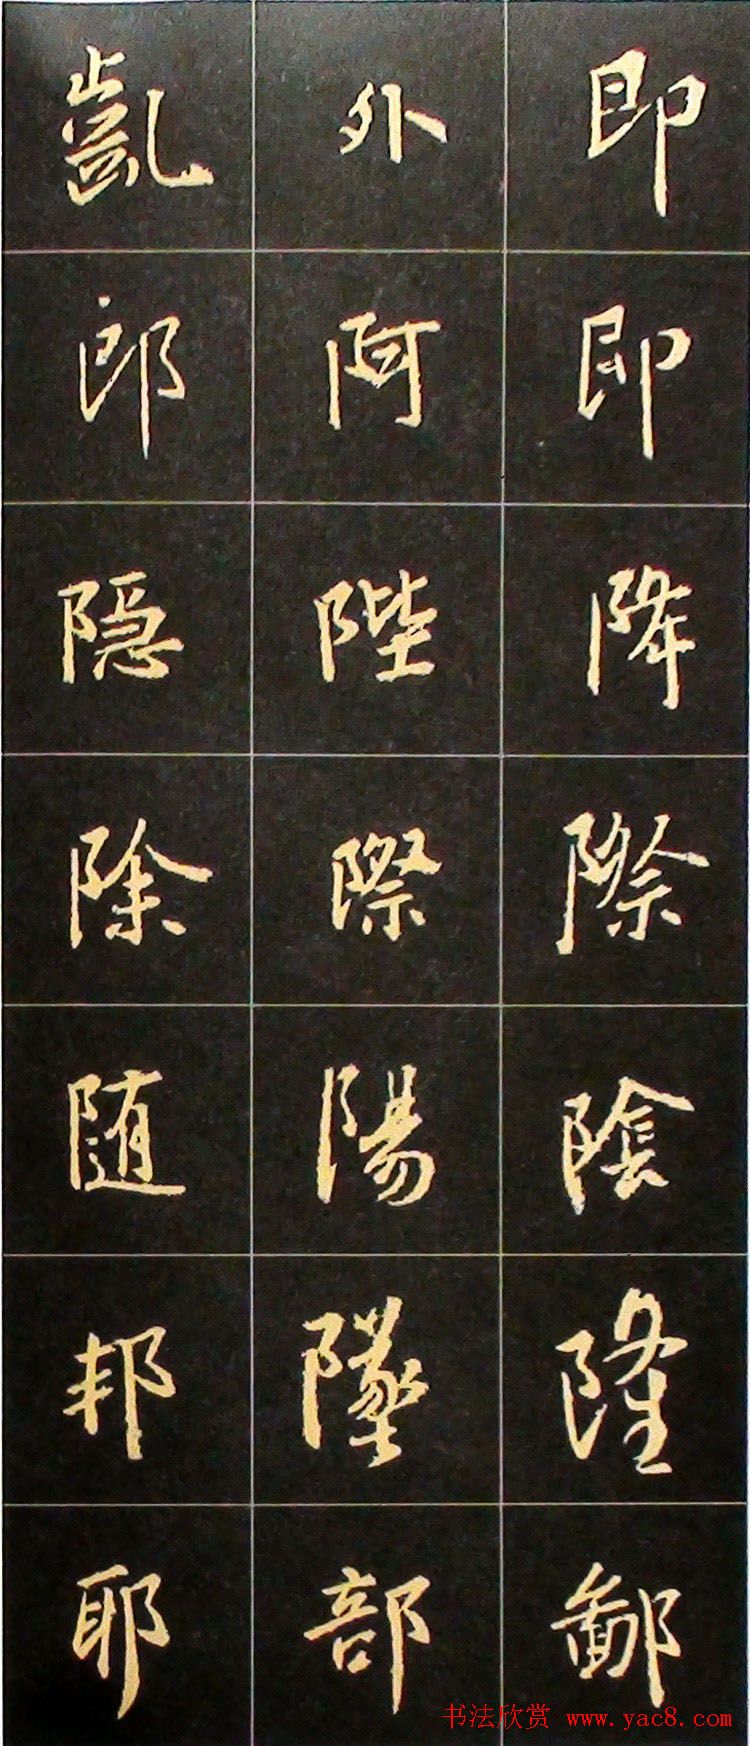 即即降際陰隆鄙
外阿陛際陽墜部
凱郎隐除随邦耶
书法欣赏 www.yac8.com